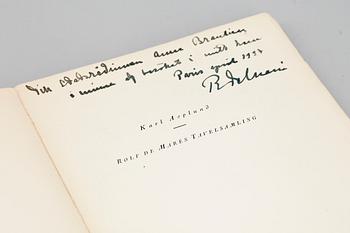 Till Statsrådinnan Anna Branting
i minne af besöket i mitt hem
Paris april 1924
R de Maré
Karl Asplund
ROLF DE MARÉS TAVELSAMLING